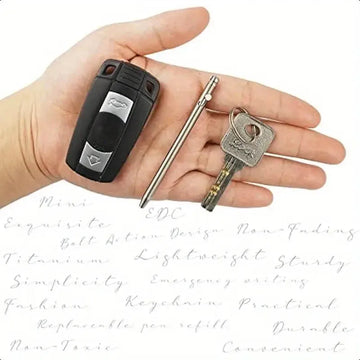 Mini
EDC
Exquisite
Bolt Action Design
Non-Fading
Titanium
Lightweight
Sturdy
Simplicity
Emergency writing
Fashion
Keychain
Practical
Replaceable pen refill
Durable
Non-Toxic
Convenient